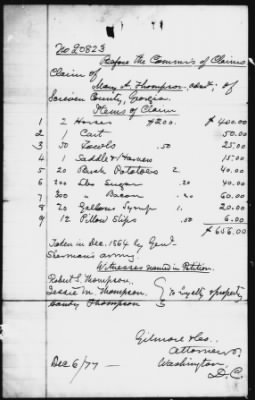 No 20823
Before the Commis of Claims
Claim of
Mary A. Thompson, admx, of
Screven County, Georgia.
Items of Claim
1 2 Horses $200. $400.00
2 1 Cart 50.00
3 50 Fowls .50 25.00
4 1 Saddle & Harness 15.00
5 20 Bush Potatoes 2. 40.00
6 200 lbs Sugar .20 40.00
7 300 " Bacon .20 60.00
8 20 Gallons Syrup 1. 20.00
9 12 Pillow Slips .50 6.00
$656.00
Taken in Dec. 1864 by Genl
Sherman's army.
Witnesses named in Petition.
Robert E. Thompson,
Jessie M. Thompson. } To loyalty & property
Sandy Thompson
Gilmore & Co.
Attorneys.
Washington
D.C.
Dec 6/77